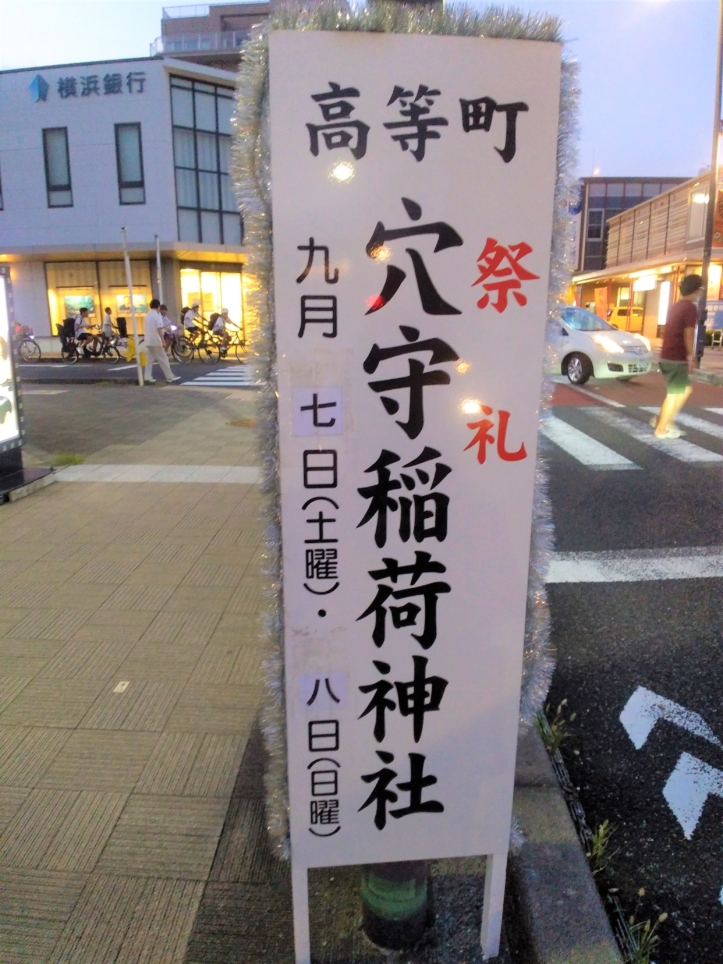 横浜銀行
高等町
祭礼
穴守稲荷神社
九月七日(土曜)・八日(日曜)